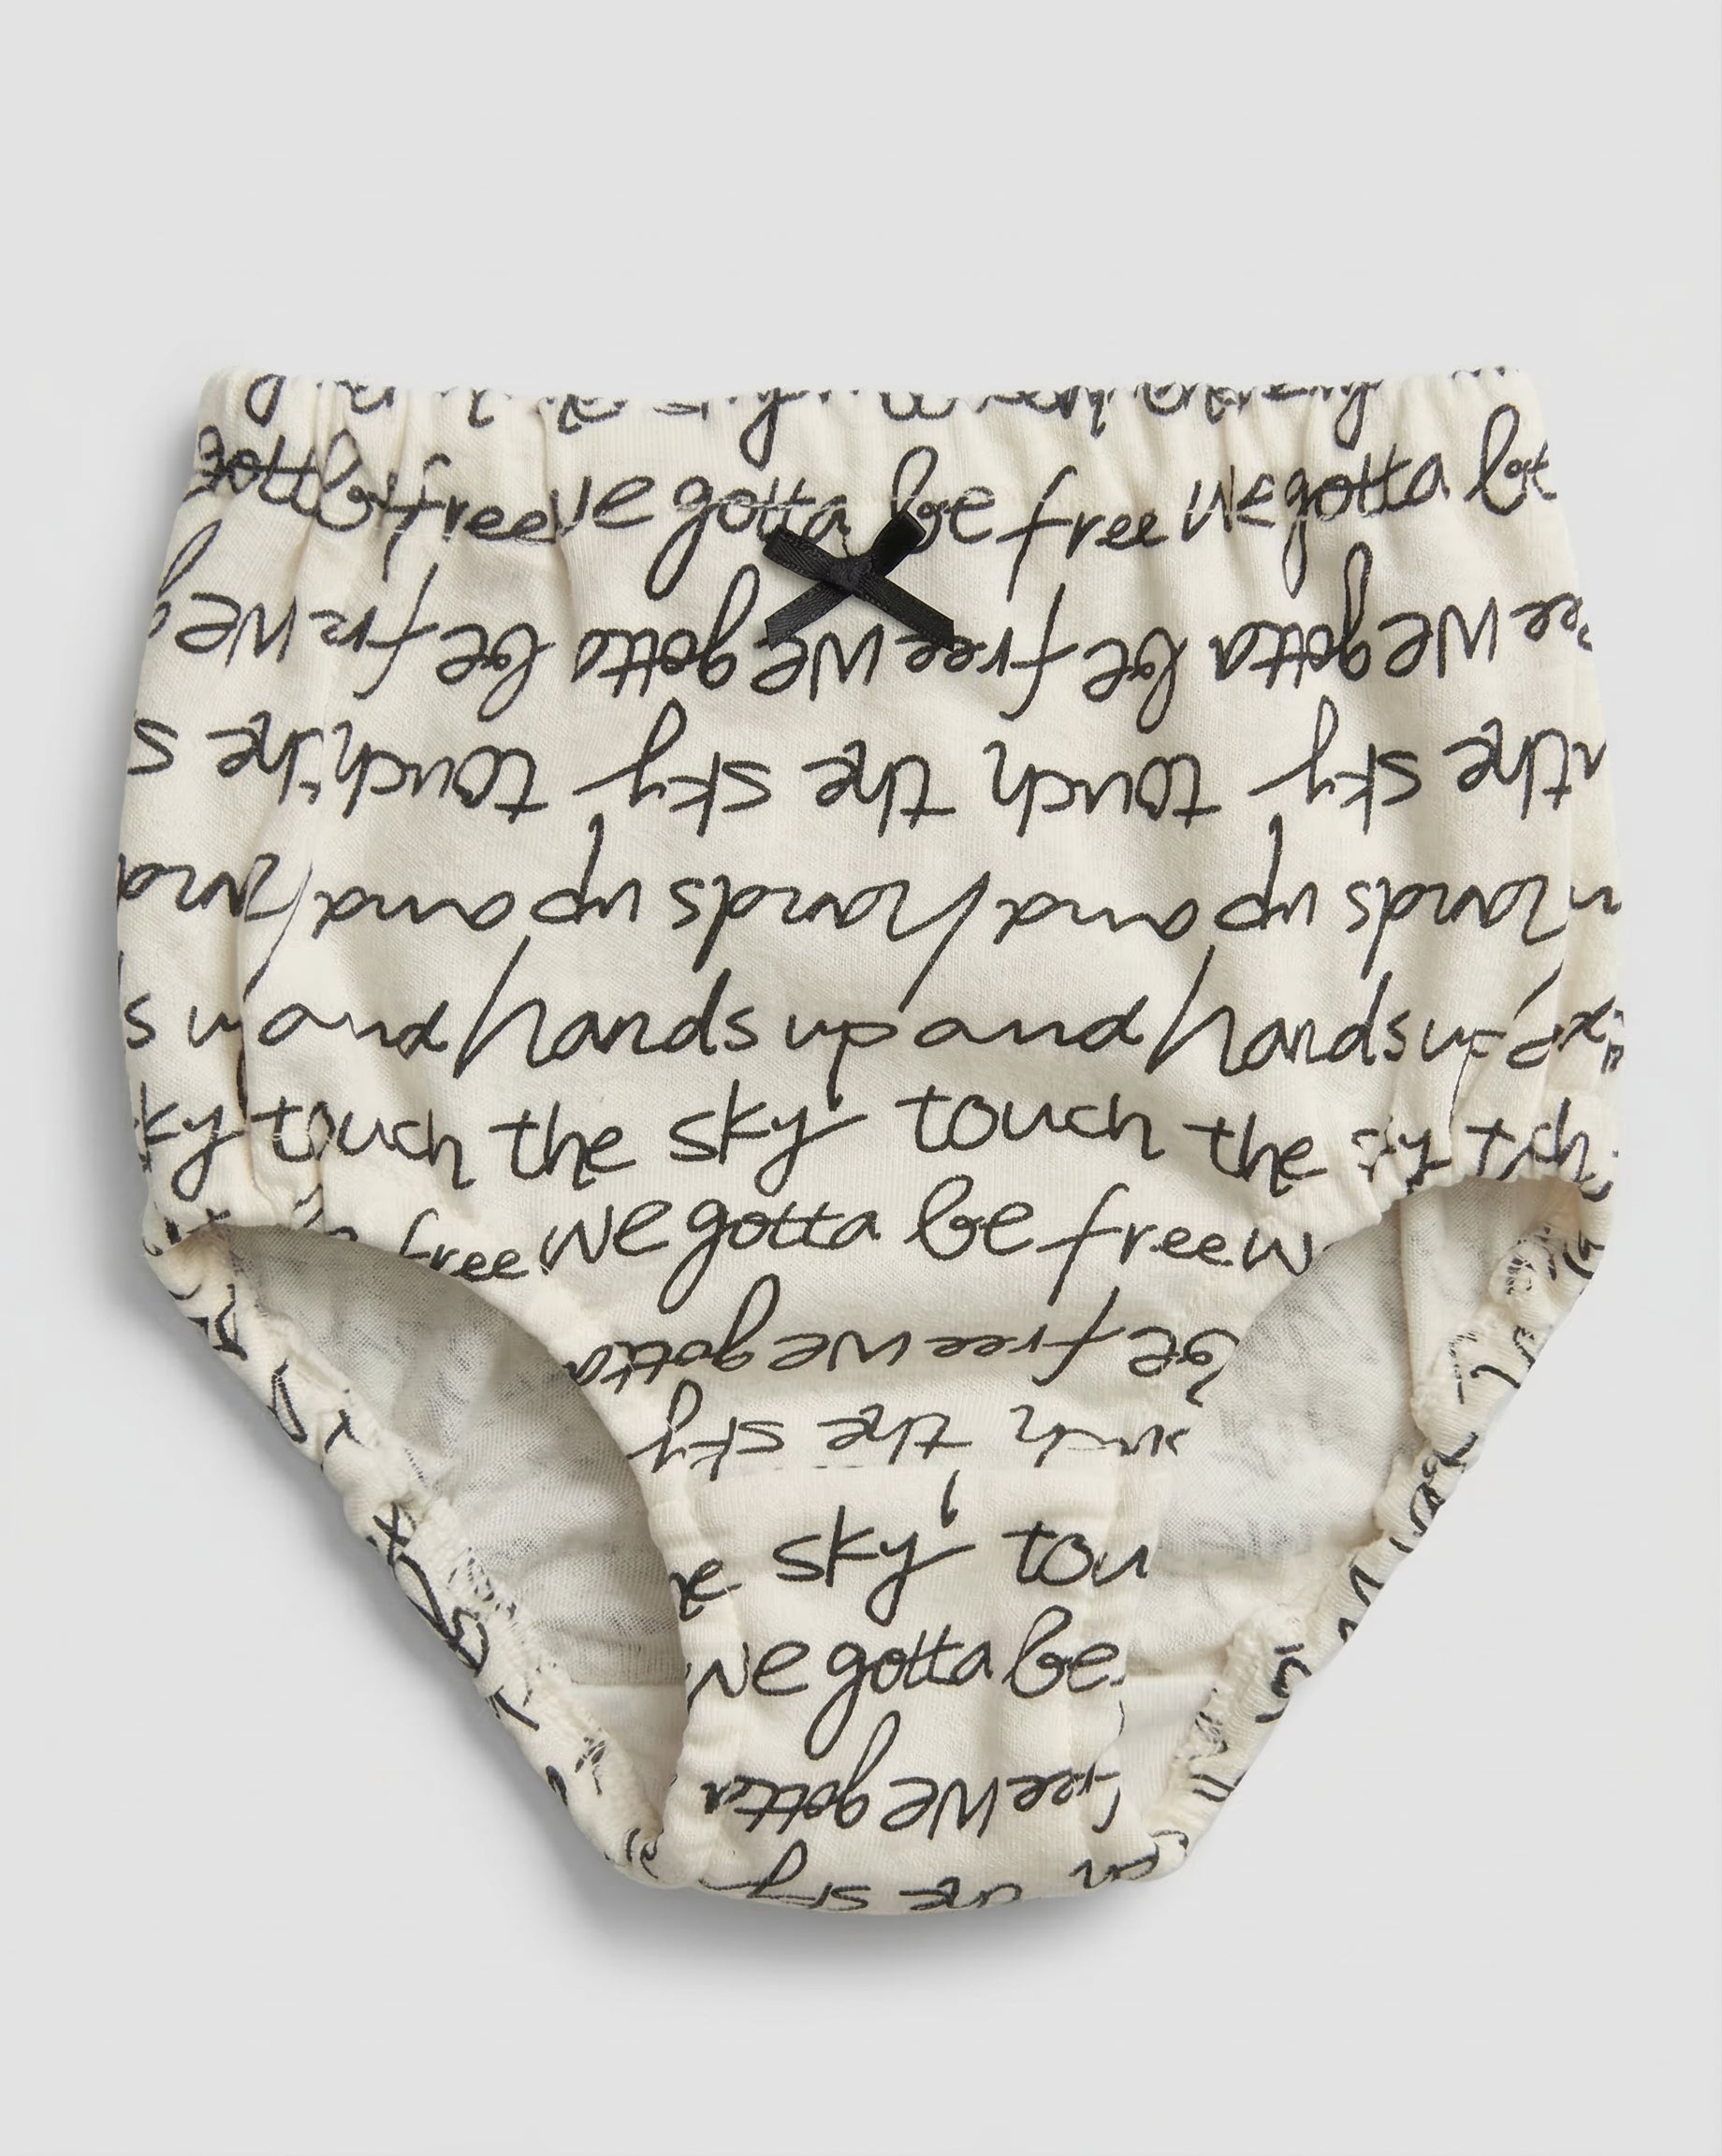 gotta be free we gotta be free we gotta be
we be free we gotta be free we gotta be we
the sky touch the sky touch the s
hands up and hands up and
s up and hands up and hands up
sky touch the sky touch the sky touch
free we gotta be free w
be free we gotta
the sky
sky tou
we gotta be
free we gotta
sky